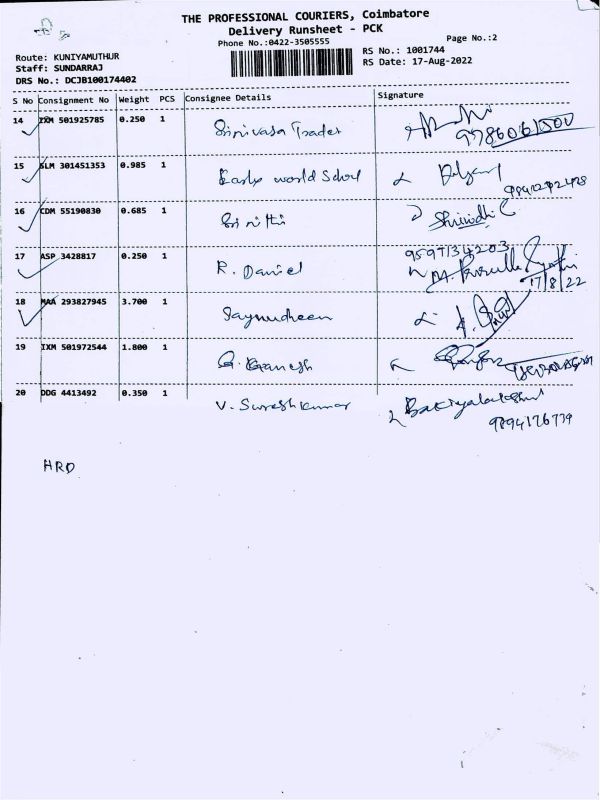 THE PROFESSIONAL COURIERS, Coimbatore
Delivery Runsheet - PCK
Phone No.:0422-3505555
Page No.:2
Route: KUNIYAMUTHUR
RS No.: 1001744
Staff: SUNDARRAJ
RS Date: 17-Aug-2022
DRS No.: DCJB100174402
S No Consignment No Weight PCS Consignee Details Signature
14 IXM 501925785 0.250 1 Srinivasa Trader
15 SLM 301451353 0.985 1 Early world School
16 CDM 55190830 0.685 1 Sri nithi Shrinidhi C
9597134203
17 ASP 3428817 0.250 1 R. Daniel
17/8/22
18 MAA 293827945 3.700 1 Saynudheen
19 IXM 501972544 1.800 1 G. Ganesh
20 DDG 4413492 0.350 1 V. Sureshkumar
9894176779
HRD